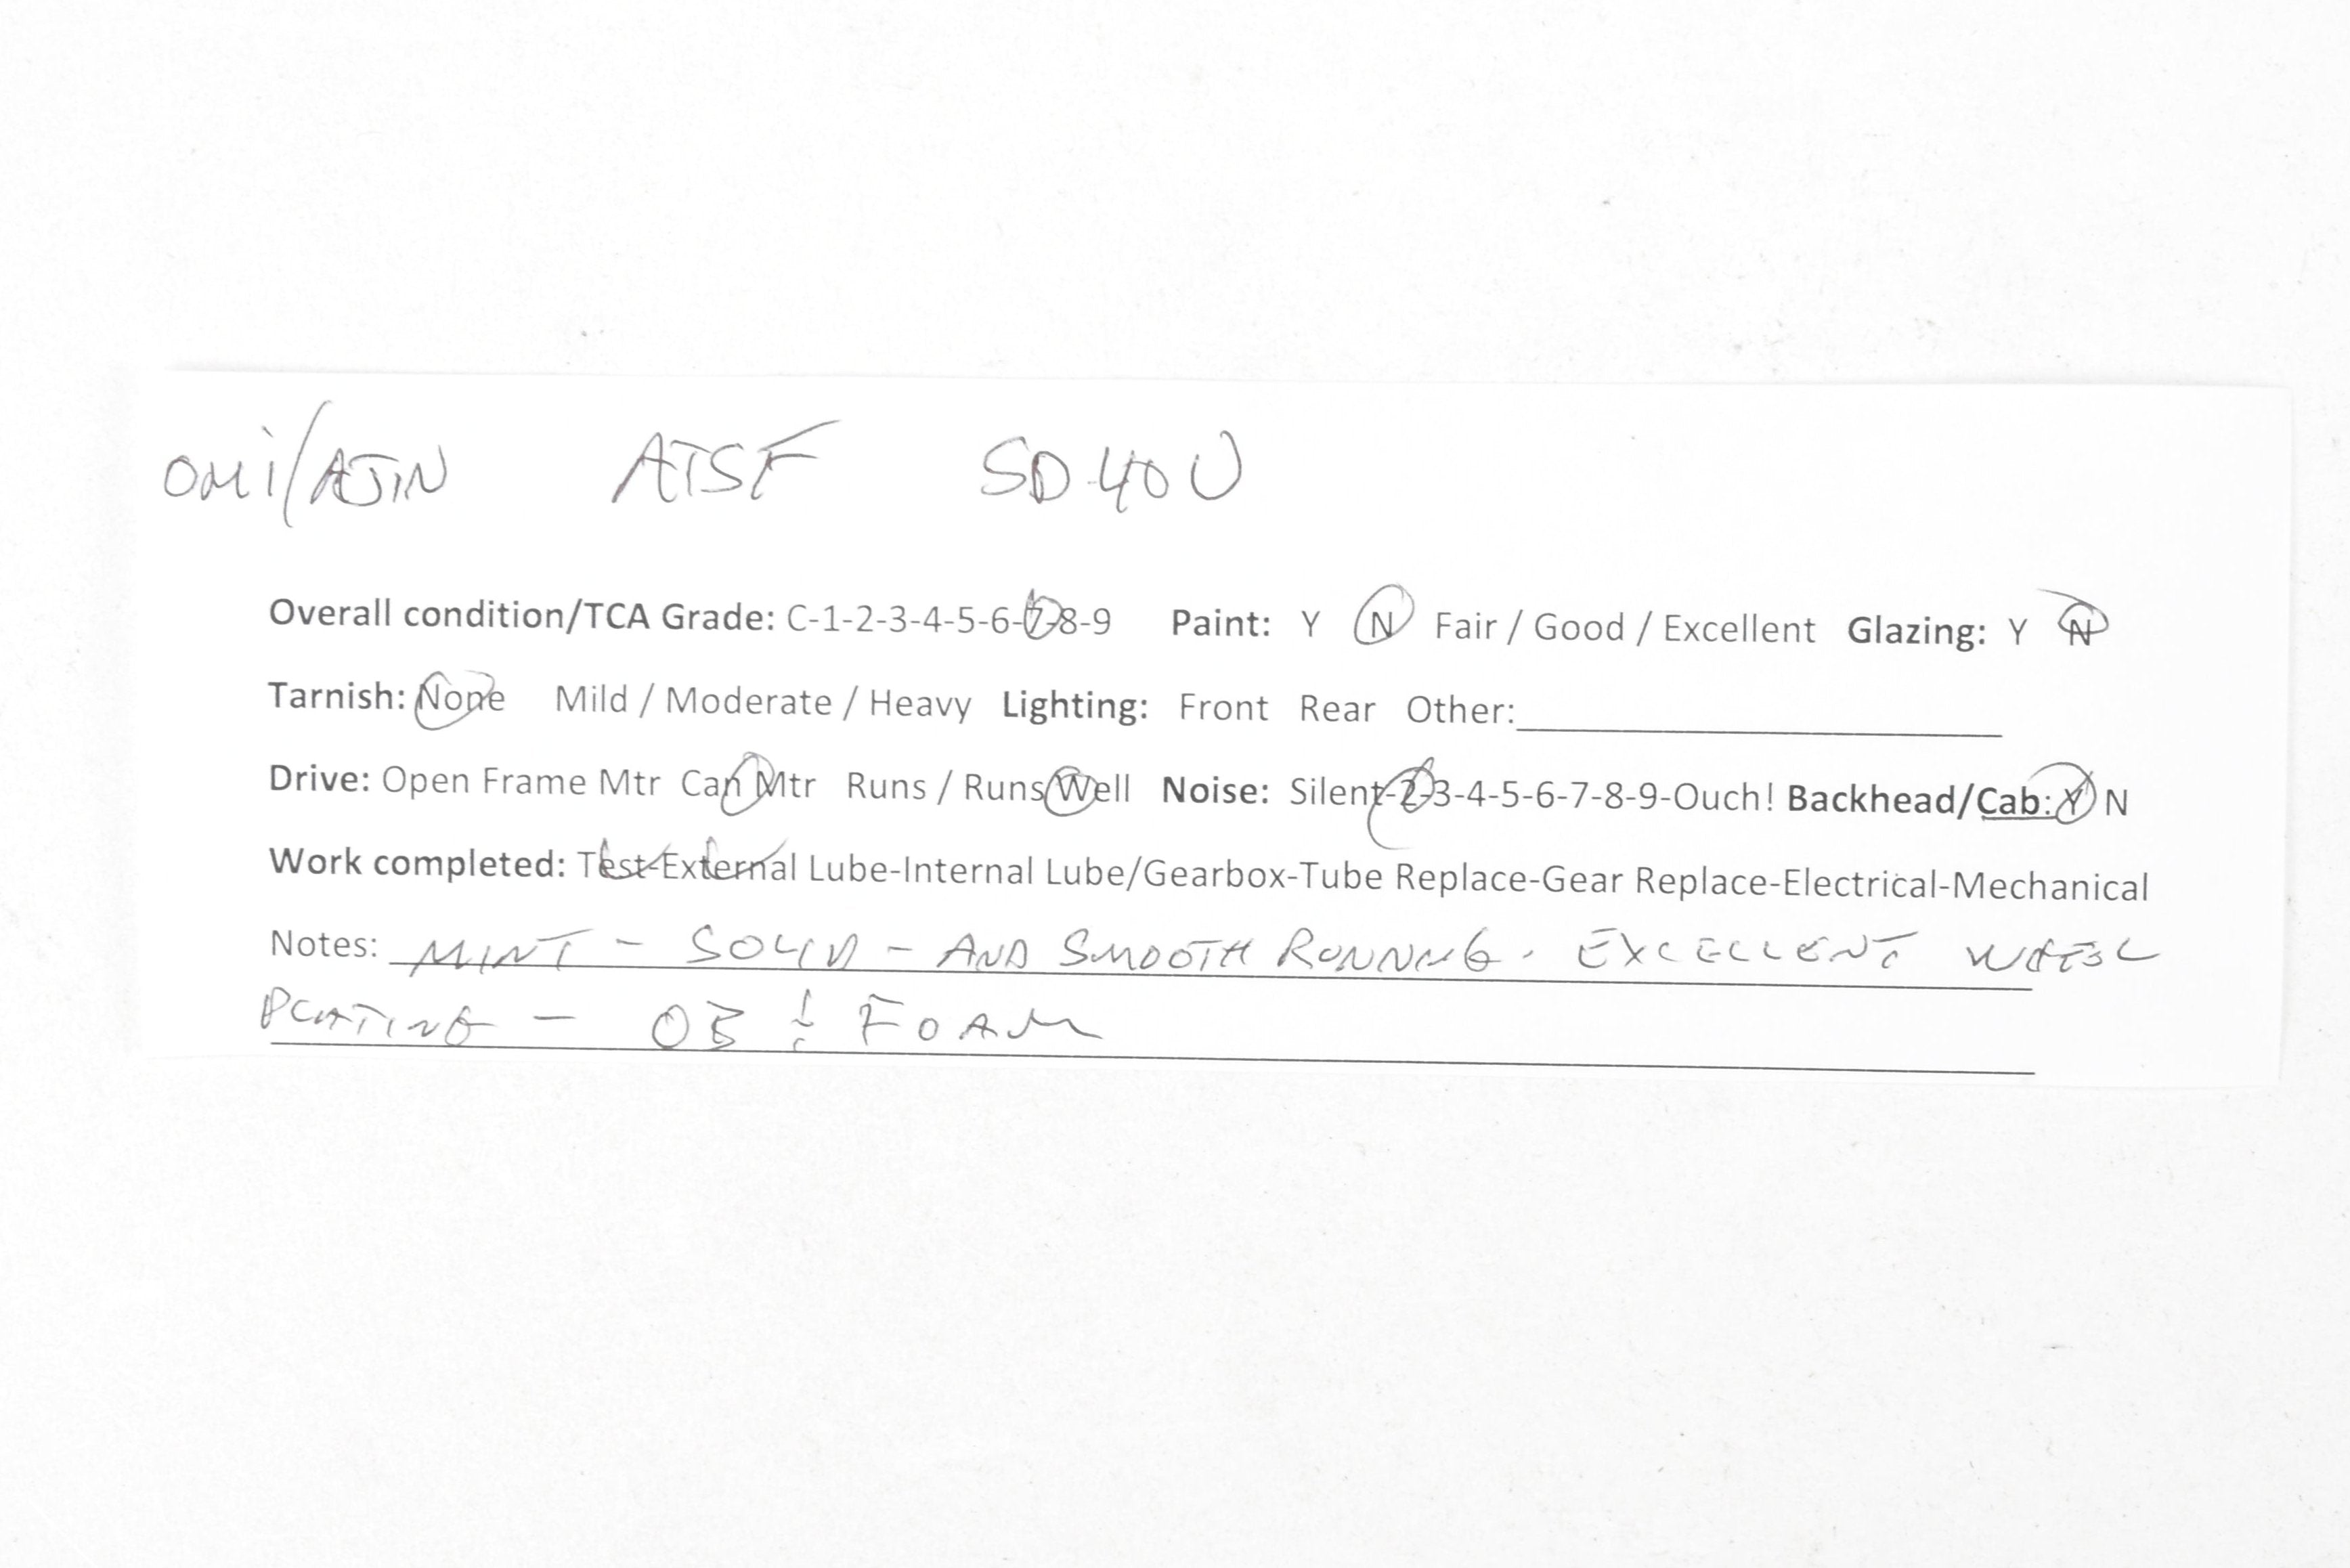 OMI/AJIN ATSF SD40U
Overall condition/TCA Grade: C-1-2-3-4-5-6-7-8-9 Paint: Y N Fair / Good / Excellent Glazing: Y N
Tarnish: None Mild / Moderate / Heavy Lighting: Front Rear Other:
Drive: Open Frame Mtr Can Mtr Runs / Runs Well Noise: Silent-2-3-4-5-6-7-8-9-Ouch! Backhead/Cab: Y N
Work completed: Test-External Lube-Internal Lube/Gearbox-Tube Replace-Gear Replace-Electrical-Mechanical
Notes: MINT - SOLID - AND SMOOTH RUNNING. EXCELLENT WHEEL
PLATING - OB & FOAM